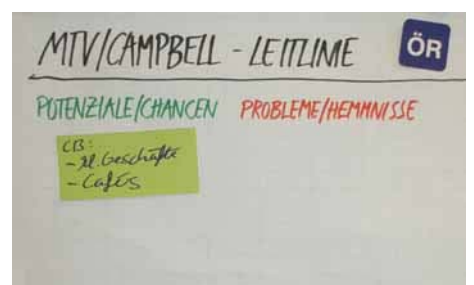 MTV/CAMPBELL - LEITLINIE
ÖR
POTENZIALE/CHANCEN PROBLEME/HEMMNISSE
CB:
- kl. Geschäfte
- Cafés